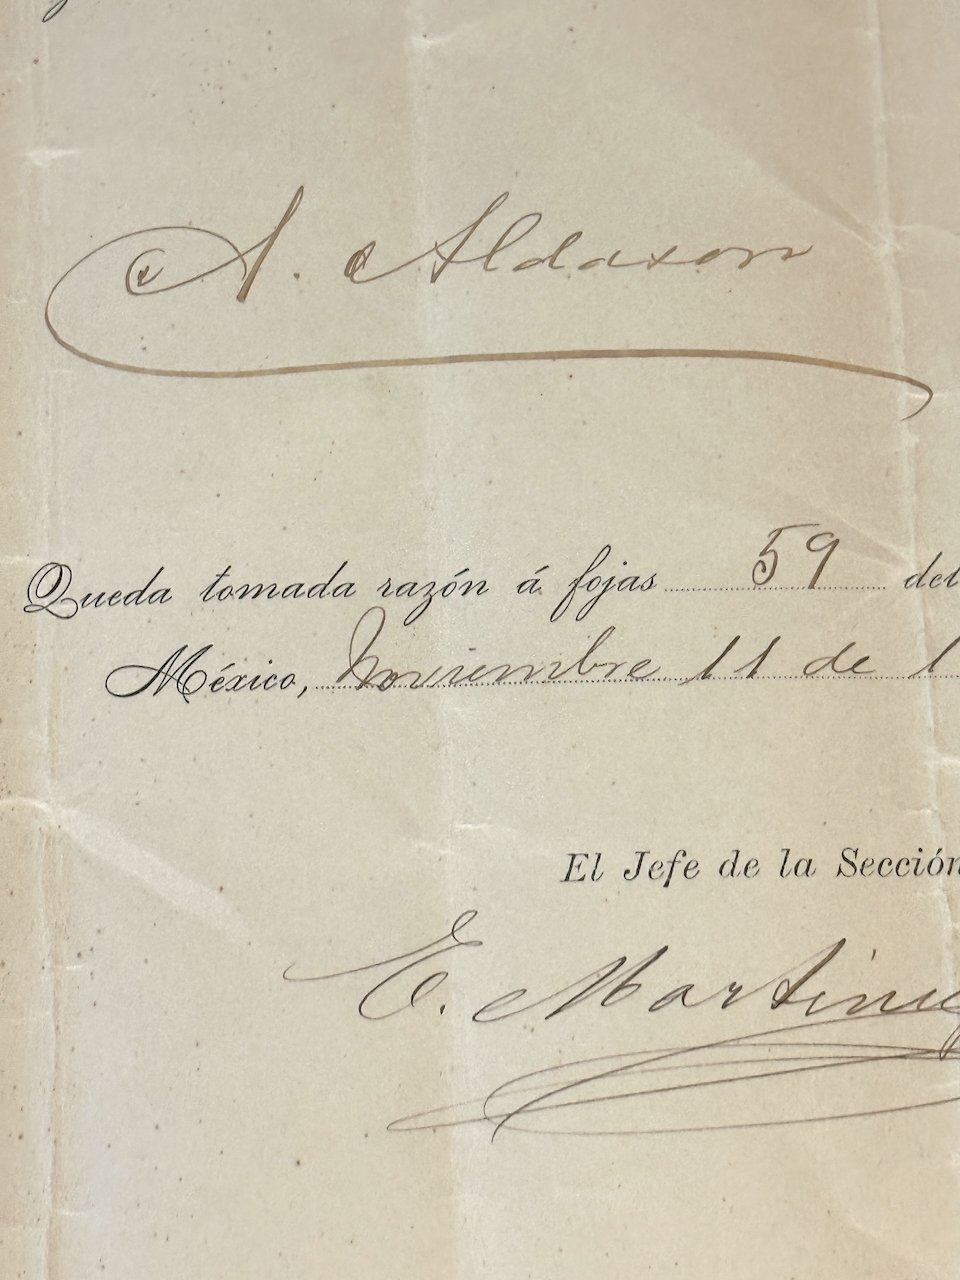 A. Aldasoro
Queda tomada razón á fojas 59 del
México, Noviembre 11 de 1
El Jefe de la Sección
E. Martínez